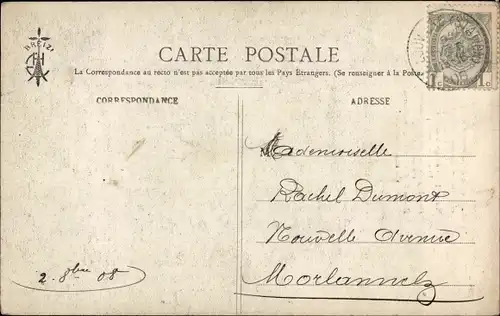 BREIZ
CARTE POSTALE
La Correspondance au recto n'est pas acceptée par tous les Pays Étrangers. (Se renseigner à la Poste
CORRESPONDANCE
ADRESSE
Mademoiselle
Rachel Dumont
Nouvelle Avenue
Morlanwelz
2 - 8bre 08
1 1